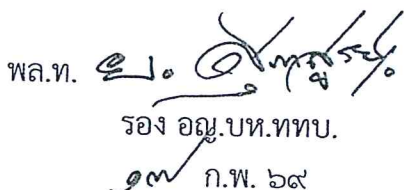 พล.ท.
รอง อญ.บห.ททบ.
๑๗ ก.พ. ๖๙